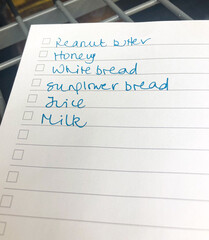 Peanut butter
Honey
White bread
Sunflower bread
Juice
Milk